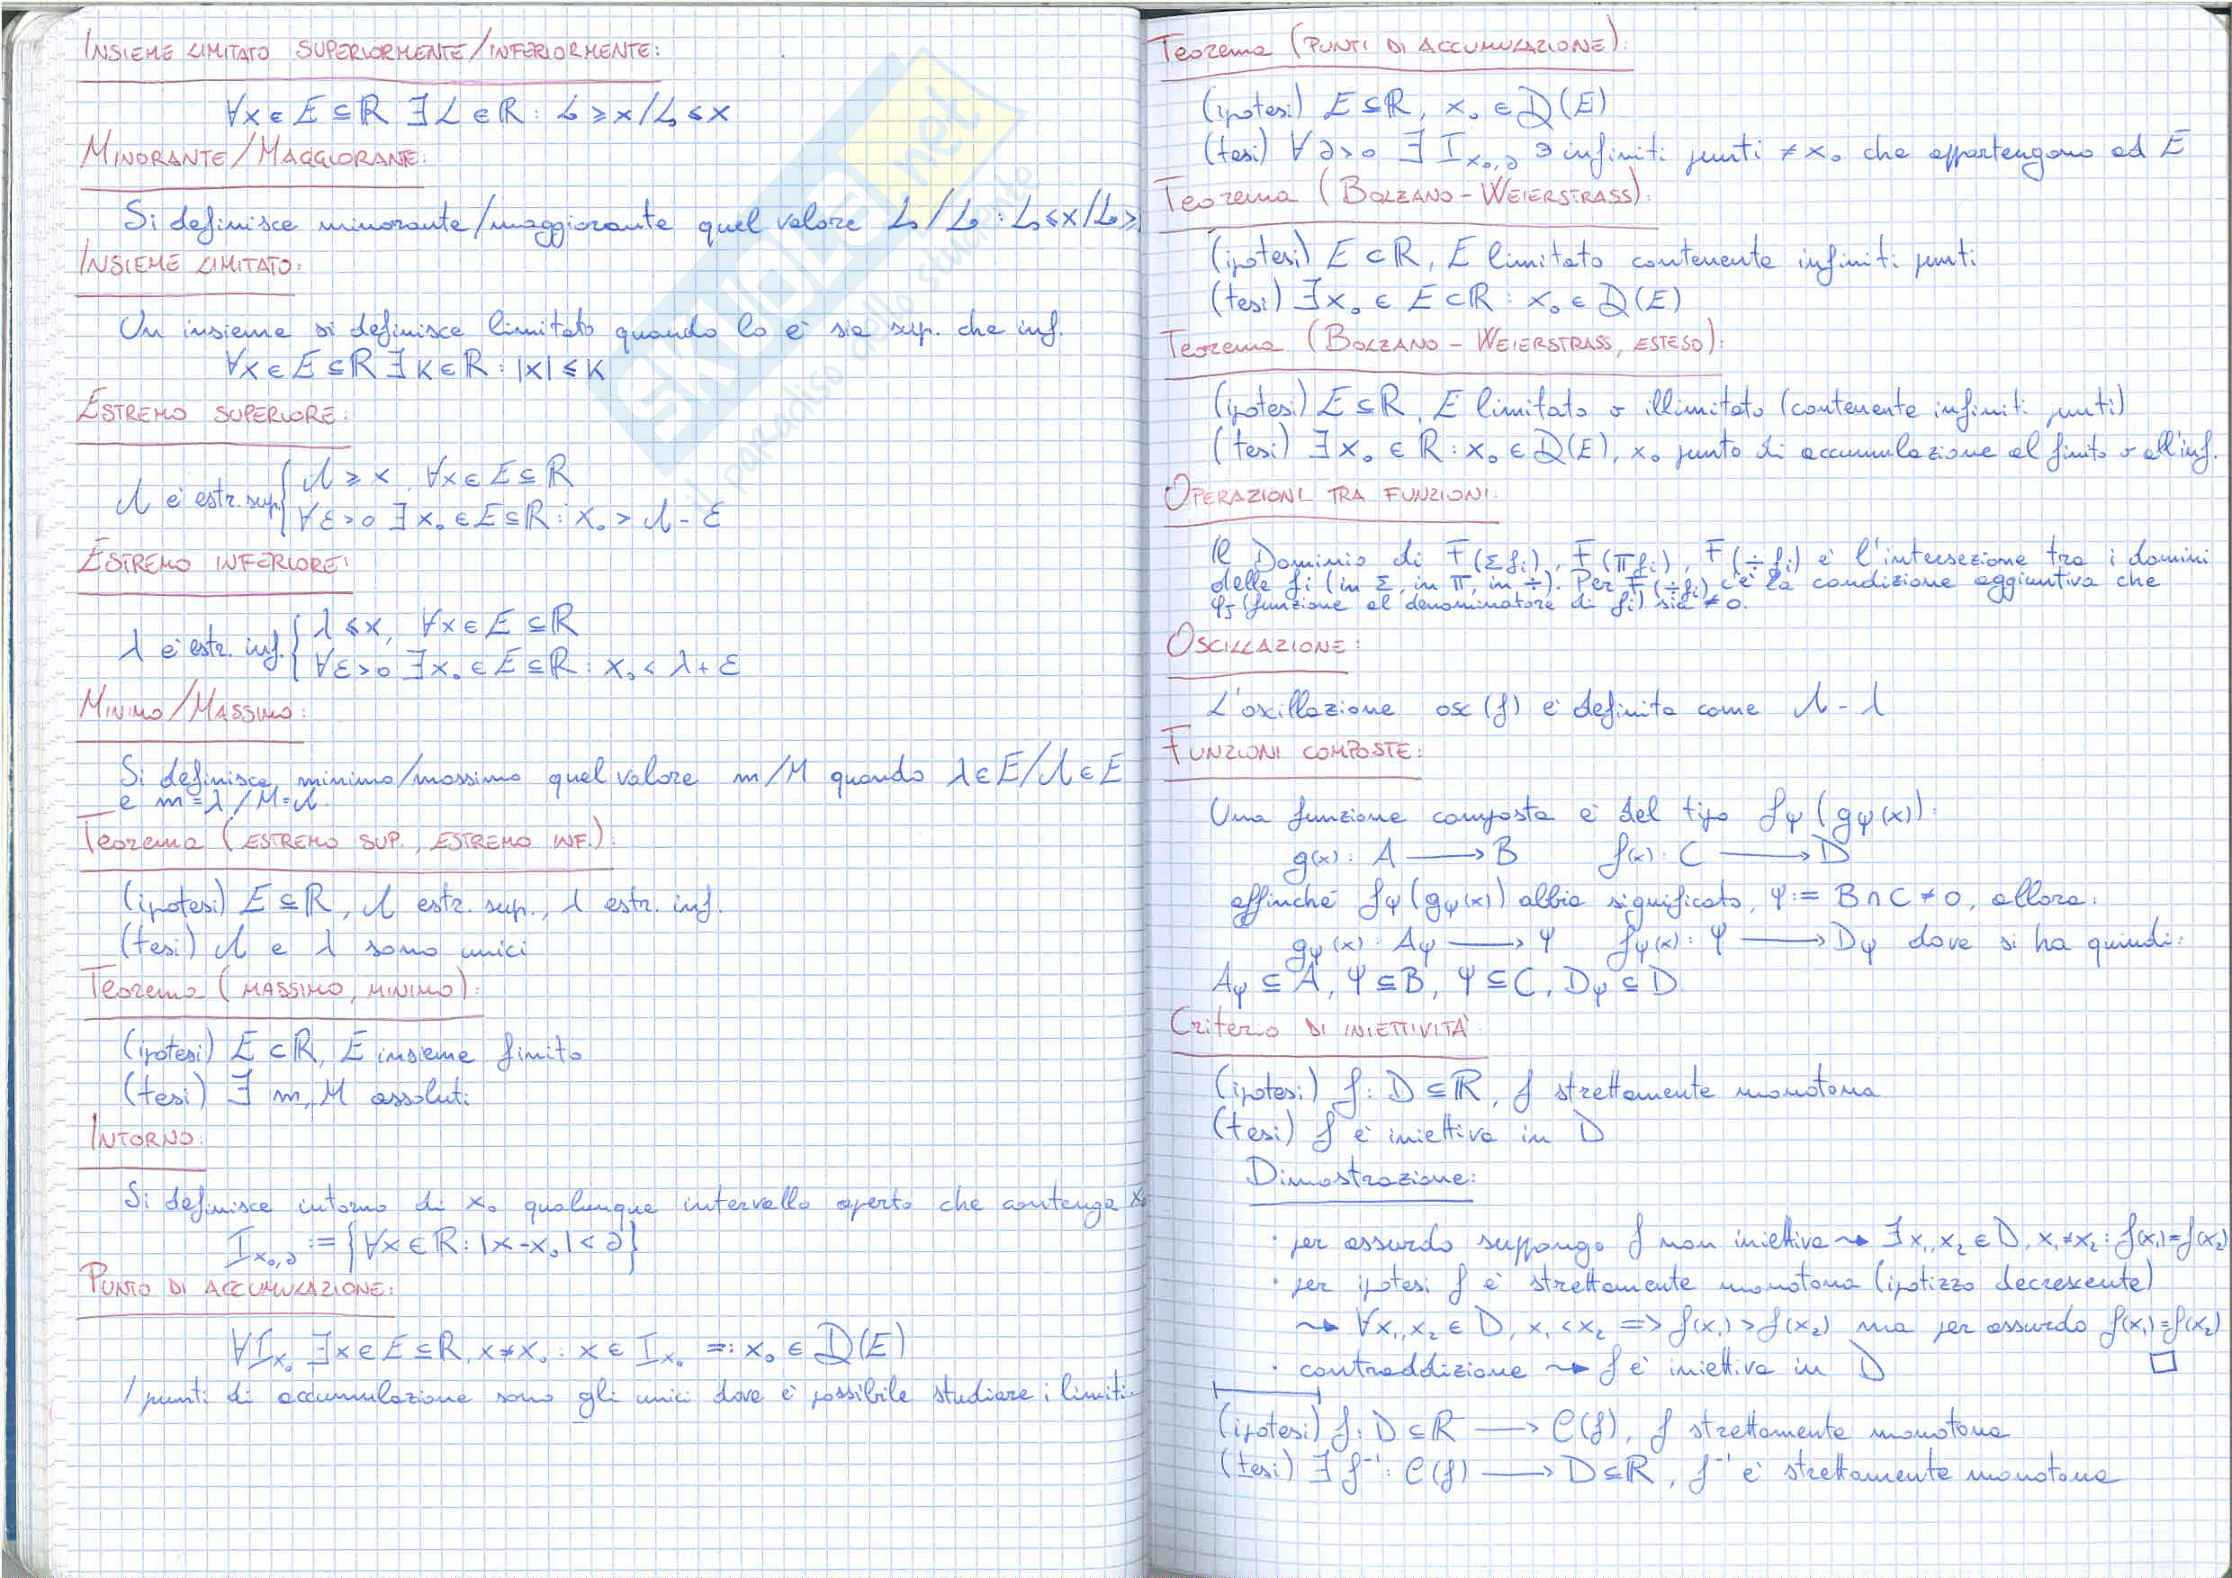 INSIEME LIMITATO SUPERIORMENTE/INFERIORMENTE:
∀x ∈ E ⊆ ℝ ∃ L ∈ ℝ : L ≥ x / L ≤ x
MINORANTE/MAGGIORANTE:
Si definisce minorante/maggiorante quel valore L/L : L ≤ x / L ≥
INSIEME LIMITATO:
Un insieme si definisce limitato quando lo è sia sup. che inf.
∀x ∈ E ⊆ ℝ ∃ K ∈ ℝ : |x| ≤ K
ESTREMO SUPERIORE:
Λ è estr. sup. { Λ ≥ x, ∀x ∈ E ⊆ ℝ
∀ε > 0 ∃ x₀ ∈ E ⊆ ℝ : x₀ > Λ - ε
ESTREMO INFERIORE:
λ è estr. inf. { λ ≤ x, ∀x ∈ E ⊆ ℝ
∀ε > 0 ∃ x₀ ∈ E ⊆ ℝ : x₀ < λ + ε
MINIMO/MASSIMO:
Si definisce minimo/massimo quel valore m/M quando λ ∈ E / Λ ∈ E
e m = λ / M = Λ
Teorema (ESTREMO SUP., ESTREMO INF.):
(ipotesi) E ⊆ ℝ, Λ estr. sup., λ estr. inf.
(tesi) Λ e λ sono unici
Teorema (MASSIMO, MINIMO):
(ipotesi) E ⊂ ℝ, E insieme finito
(tesi) ∃ m, M assoluti
INTORNO:
Si definisce intorno di x₀ qualunque intervallo aperto che contenga x₀
I x₀,∂ := {∀x ∈ ℝ : |x - x₀| < ∂}
PUNTO DI ACCUMULAZIONE:
∀I x₀ ∃ x ∈ E ⊆ ℝ, x ≠ x₀ : x ∈ I x₀ =: x₀ ∈ 𝒟(E)
I punti di accumulazione sono gli unici dove è possibile studiare i limiti.
Teorema (PUNTI DI ACCUMULAZIONE):
(ipotesi) E ⊆ ℝ, x₀ ∈ 𝒟(E)
(tesi) ∀∂ > 0 ∃ I x₀,∂ ∋ infiniti punti ≠ x₀ che appartengono ad E
Teorema (BOLZANO-WEIERSTRASS):
(ipotesi) E ⊂ ℝ, E limitato contenente infiniti punti
(tesi) ∃ x₀ ∈ E ⊂ ℝ : x₀ ∈ 𝒟(E)
Teorema (BOLZANO - WEIERSTRASS, ESTESO):
(ipotesi) E ⊆ ℝ, E limitato o illimitato (contenente infiniti punti)
(tesi) ∃ x₀ ∈ ℝ : x₀ ∈ 𝒟(E), x₀ punto di accumulazione al finito o all'inf.
OPERAZIONI TRA FUNZIONI:
Il Dominio di F(Σfi), F(πfi), F(÷fi) è l'intersezione tra i domini
delle fi (in Σ, in π, in ÷). Per F(÷fi) c'è la condizione aggiuntiva che
φJ (funzione al denominatore di fi) sia ≠ 0.
OSCILLAZIONE:
L'oscillazione osc (f) è definita come Λ - λ
FUNZIONI COMPOSTE:
Una funzione composta è del tipo fψ (gψ(x)):
g(x): A ⟶ B f(x): C ⟶ D
affinché fψ (gψ(x)) abbia significato, Ψ := B ∩ C ≠ 0, allora:
gψ(x): Aψ ⟶ Ψ fψ(x): Ψ ⟶ Dψ dove si ha quindi:
Aψ ⊆ A, Ψ ⊆ B, Ψ ⊆ C, Dψ ⊆ D
Criterio DI INIETTIVITÀ
(ipotesi) f: D ⊆ ℝ, f strettamente monotona
(tesi) f è iniettiva in D
Dimostrazione:
· per assurdo suppongo f non iniettiva ⇝ ∃ x₁, x₂ ∈ D, x₁ ≠ x₂ : f(x₁) = f(x₂)
· per ipotesi f è strettamente monotona (ipotizzo decrescente)
⇝ ∀x₁, x₂ ∈ D, x₁ < x₂ => f(x₁) > f(x₂) ma per assurdo f(x₁) = f(x₂)
· contraddizione ⇝ f è iniettiva in D □
(ipotesi) f: D ⊆ ℝ ⟶ C(f), f strettamente monotona
(tesi) ∃ f⁻¹: C(f) ⟶ D ⊆ ℝ, f⁻¹ è strettamente monotona
SKUOLA.net
il paradiso dello studente